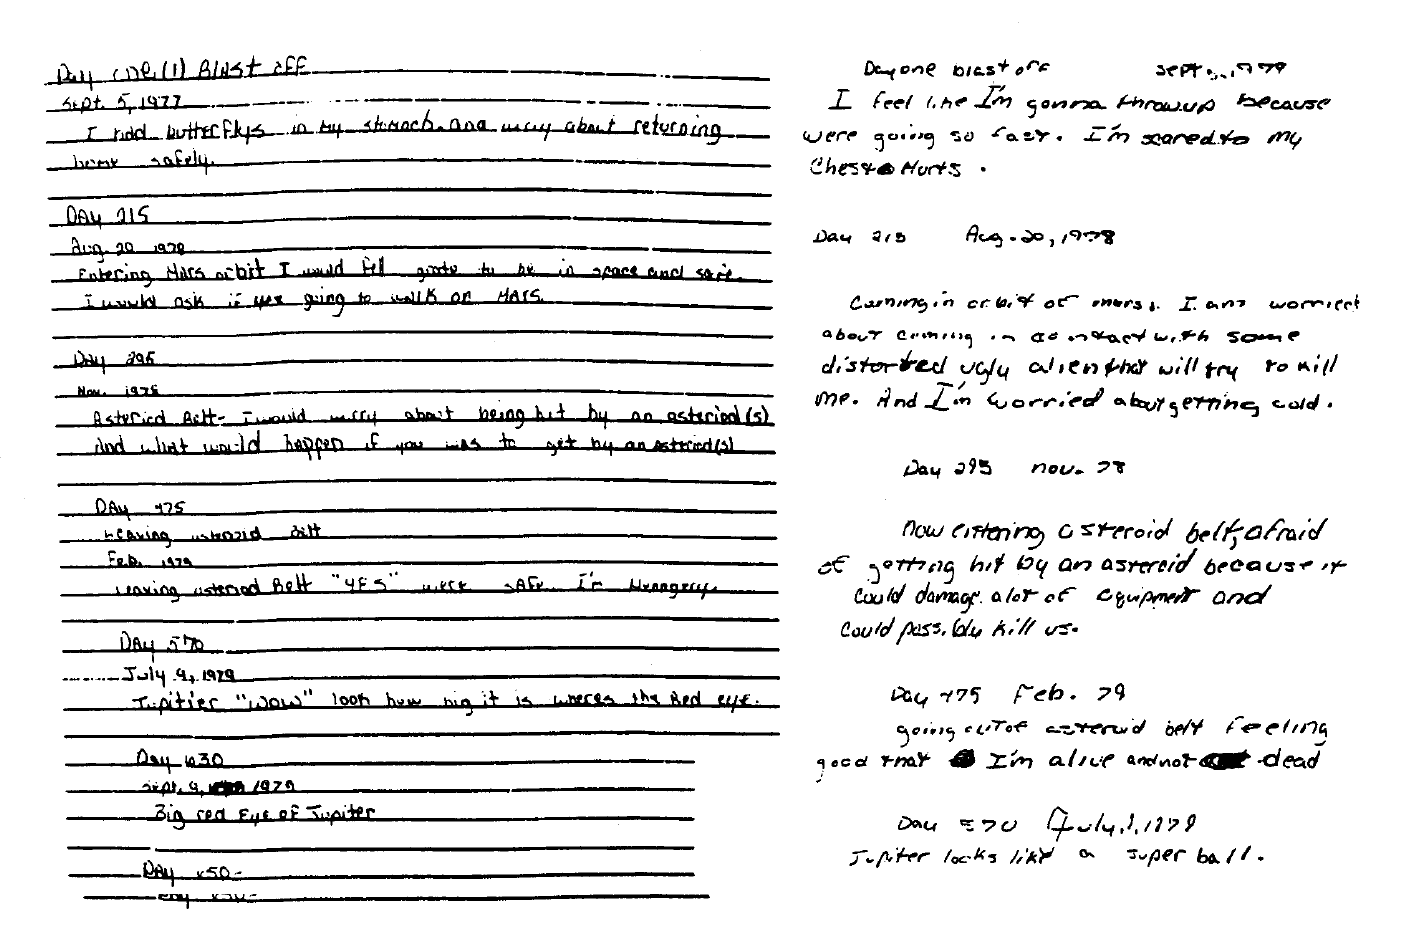 Day one (1) Blast off
Sept. 5, 1977
I had butterflys in my stomach and worry about returning
home safely.
DAy 215
Aug. 20 1978
Entering Mars orbit I would fell good to be in space and safe.
I would ask if going to walk on MArs.
Day 295
Nov. 1978
Asteriod Belt- I would worry about being hit by an asteriod(s)
And what would happen if you was to get by an asteriod(s)
DAy 475
Leaving asteroid Belt
Feb. 1979
Leaving asteriod Belt "YES" were sAfe I'm Hungery.
DAy 570
July 9, 1979
Jupitier "WOW" look how big it is wheres the Red eye.
Day 630
Sept. 9, 1979
Big red Eye of Jupiter
DAy 650-
Day one blast off sept 5, 1979
I feel like I'm gonna throwup because
were going so fast. I'm scared to my
Chest Hurts .
Day 215 Aug. 20, 1978
Coming in orbit of mars. I am worried
about coming in contact with some
distorted ugly alien that will try to kill
me. And I'm worried about getting cold.
Day 295 nov. 78
Now entering asteroid belt, afraid
of getting hit by an asteroid because it
could damage a lot of equipment and
could possibly kill us.
Day 475 Feb. 79
going out of asteroid belt feeling
good that I'm alive and not dead
Day 570 July, 9, 1979
Jupiter looks like a super ball.